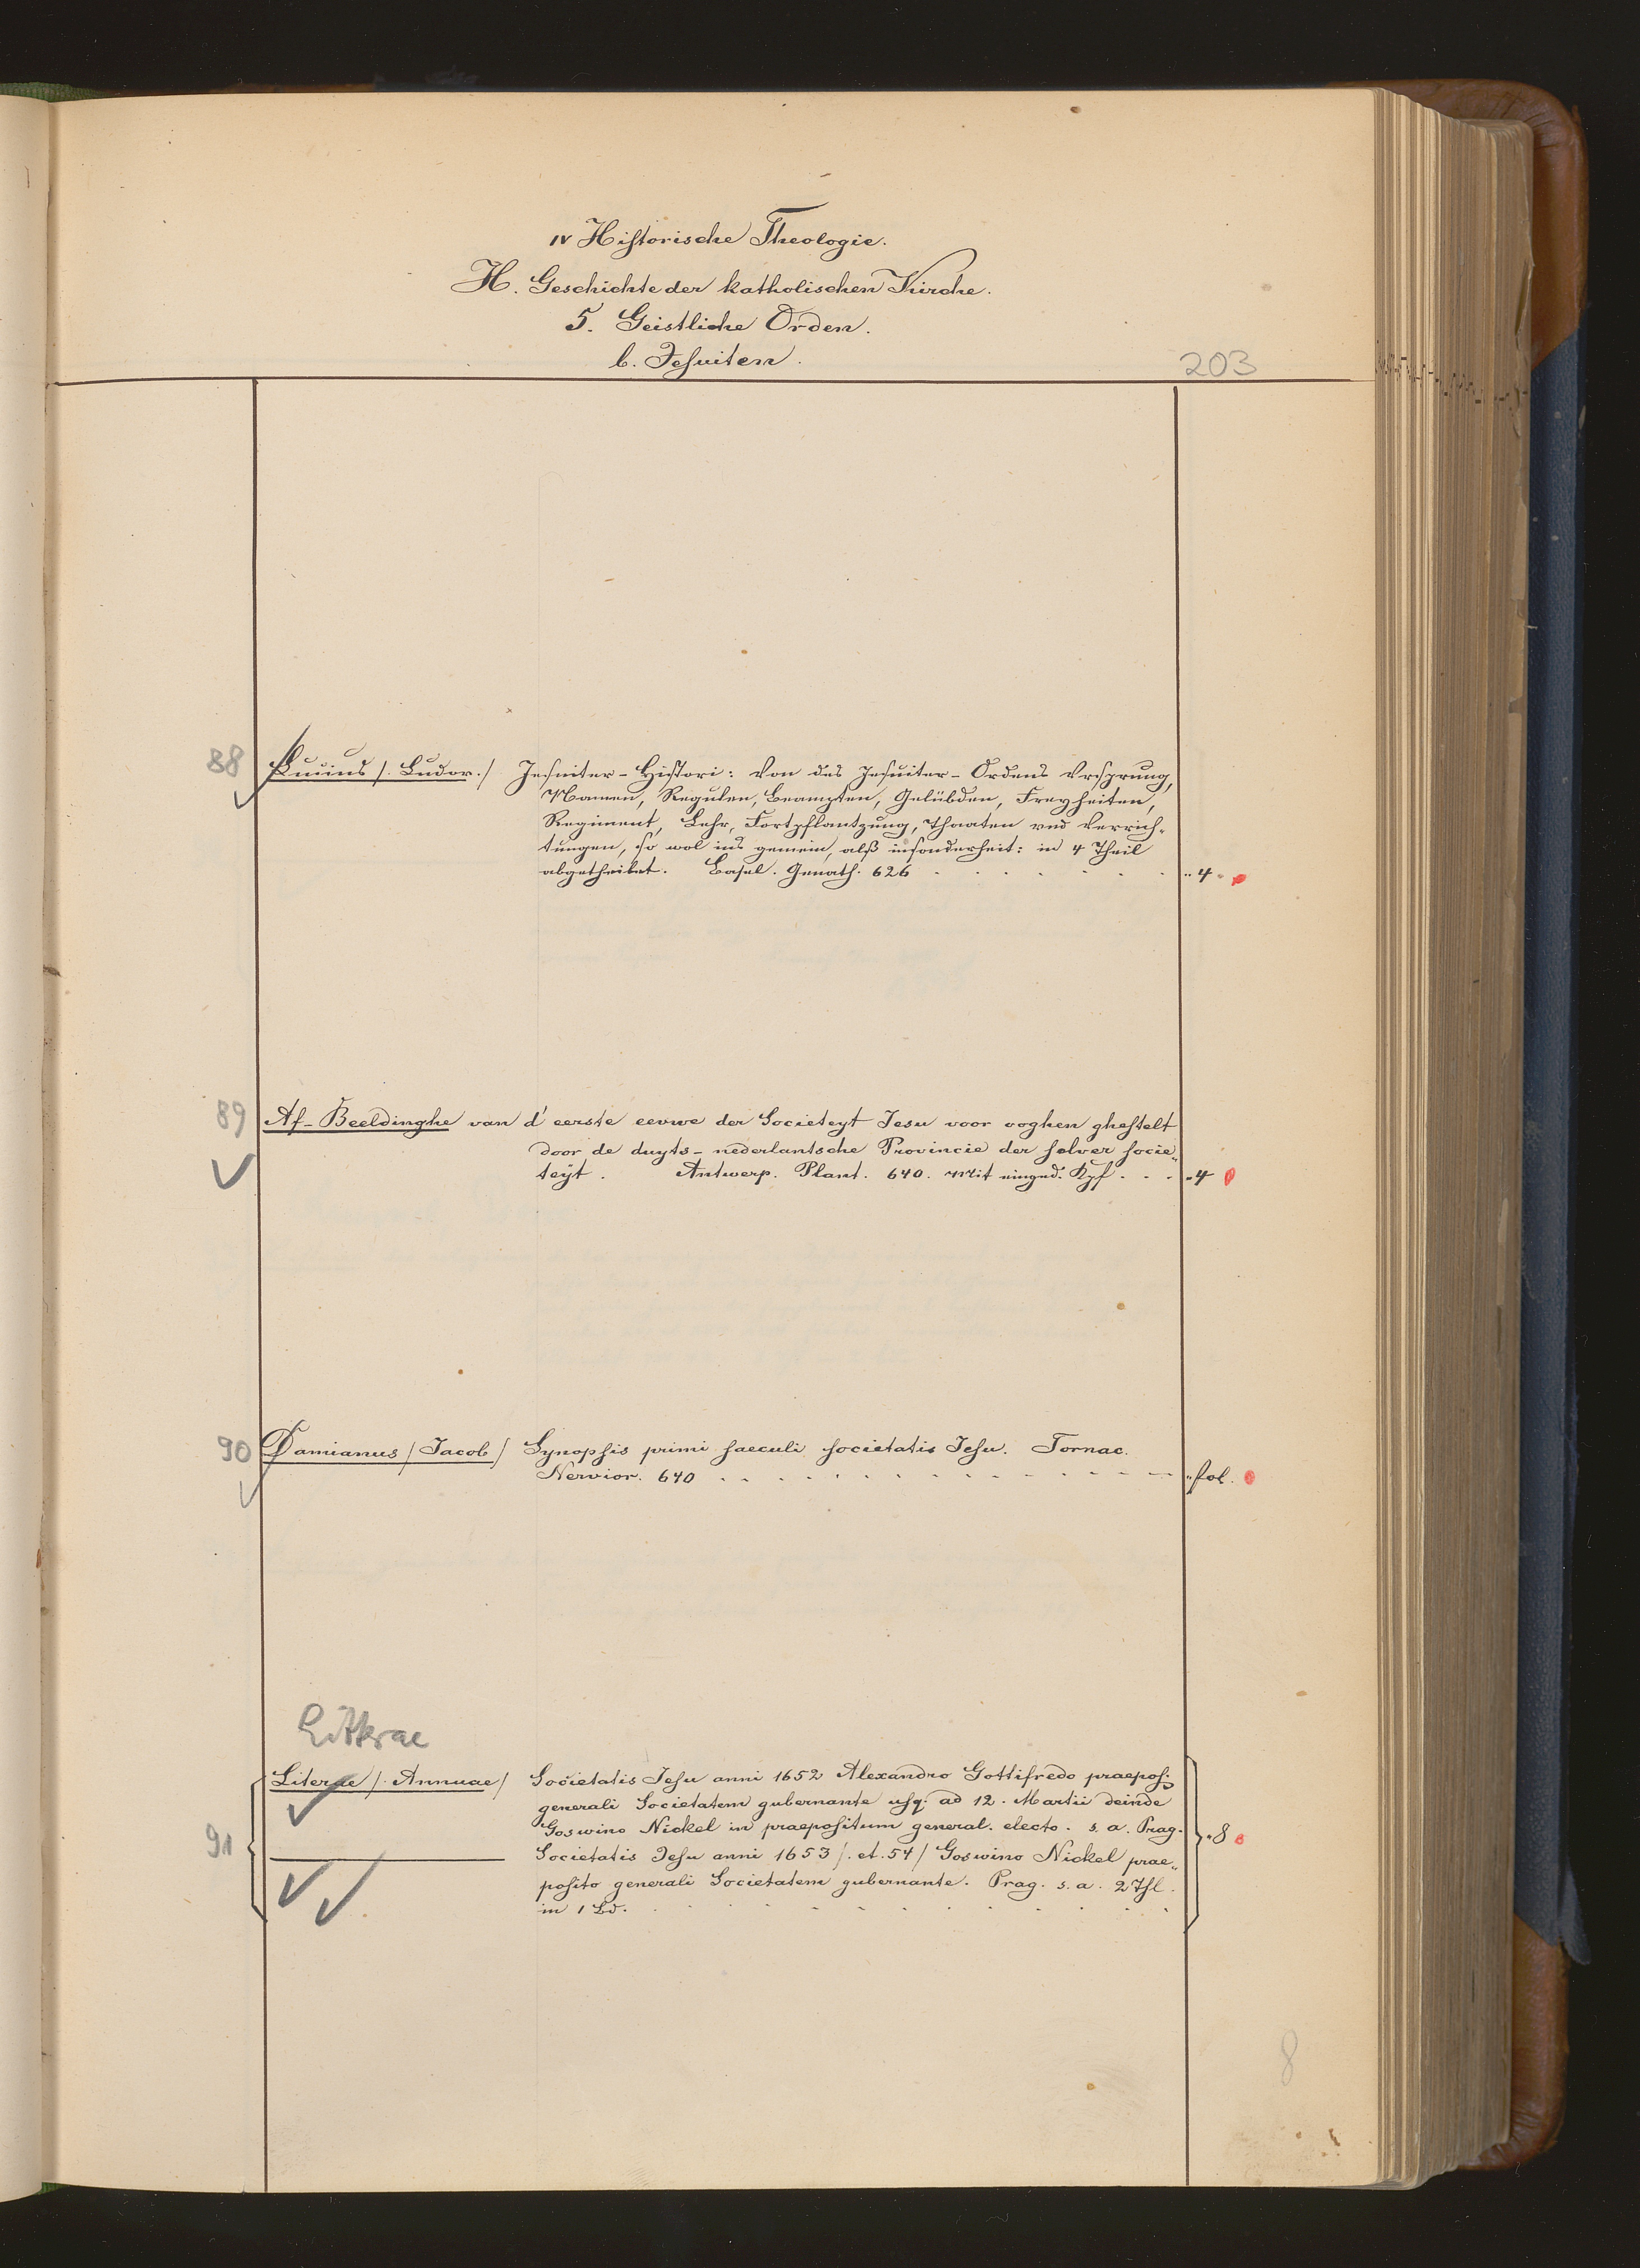 IV Historische Theologie.
H. Geschichte der katholischen Kirche.
5. Geistliche Orden.
b. Jesuiten.
203
88 Lucius /. Ludov./ Jesuiter-Histori: Von des Jesuiter-Ordens Vrsprung,
Namen, Regulen, Beampten, Gelübden, Freyheiten,
Regiment, Lehr, Fortpflantzung, Thaaten vnd Verrich-
tungen, so wol ins gemein, alß insonderheit: in 4 Theil
abgetheilet. Basel. Genath. 626 . . . . . . „ 4.
89 Af-Beeldinghe van d' eerste eevwe der Societeyt Jesu voor ooghen ghestelt
door de duyts-nederlantsche Provincie der selver socie„
teÿt. Antwerp. Plant. 640. Mit eingedr. Kpf . . . „ 4
90 Damianus / Jacob / Synopsis primi saeculi societatis Jesu. Tornac.
Nervior. 640 . . . . . . . . . . „ fol.
Litterae
Literae /. Annuae / Societatis Jesu anni 1652 Alexandro Gottifredo praepos.
generali Societatem gubernante usq. ad 12. Martii deinde
Goswino Nickel in praepositum general. electo. s. a. Prag.
91 „ 8
Societatis Jesu anni 1653 /. et. 54 / Goswino Nickel prae„
posito generali Societatem gubernante. Prag. s. a. 2 Thl.
in 1 Bd. . . . . . . . . . .
8